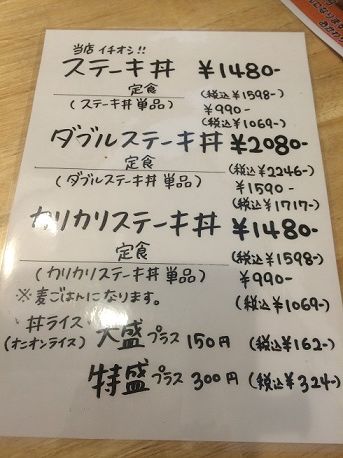 当店 イチオシ!!
ステーキ丼 ¥1480-
定食 (税込¥1598-)
(ステーキ丼 単品) ¥990-
(税込¥1069-)
ダブルステーキ丼 ¥2080-
定食 (税込¥2246-)
(ダブルステーキ丼 単品) ¥1590-
(税込¥1717-)
カリカリステーキ丼 ¥1480-
定食 (税込¥1598-)
(カリカリステーキ丼 単品) ¥990-
※麦ごはんになります。 (税込¥1069-)
丼ライス 大盛プラス 150円 (税込¥162-)
(オニオンライス)
特盛プラス 300円 (税込¥324-)